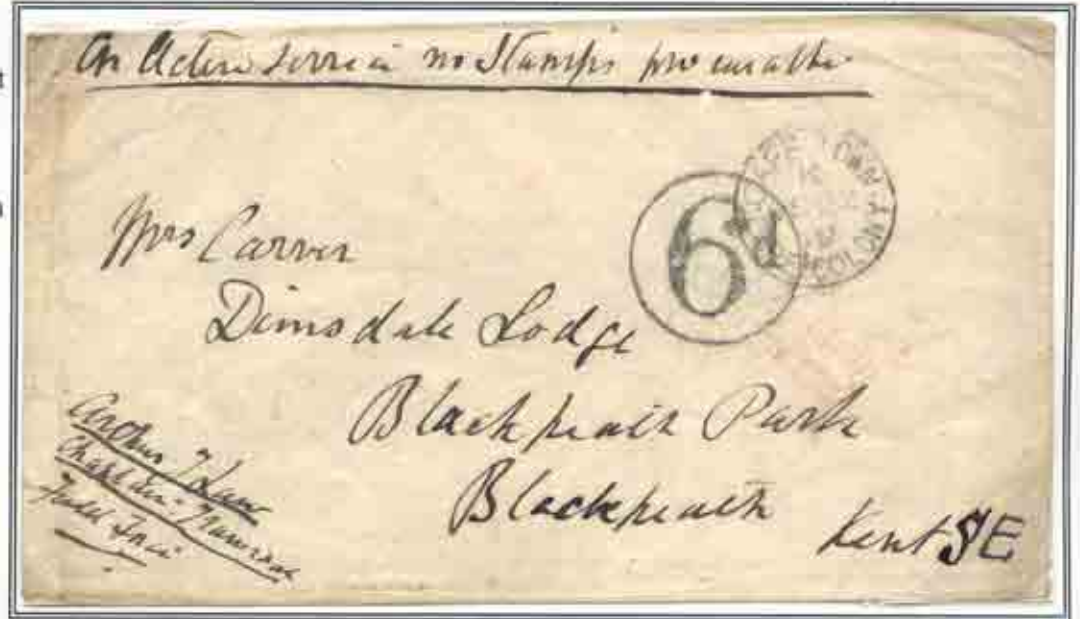 On Active Service no Stamps procurable
6d
COLONY
Mrs Carver
Dimsdale Lodge
Blackheath Park
Blackheath
Kent SE
Chaplain
Field Force